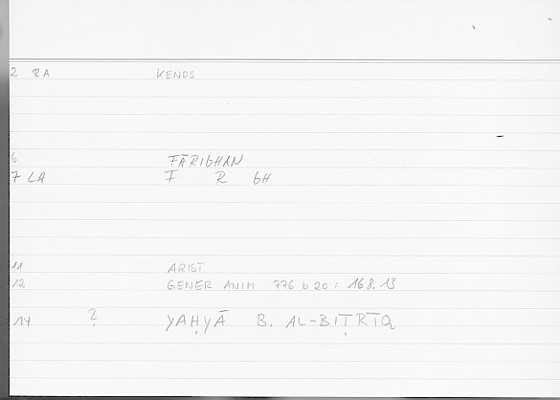 2 RA KENOS
6 FĀRIGHAN
7 LA F R GH
11 ARIST
12 GENER ANIM 776 b 20 : 168.13
14 ? YAḤYĀ B. AL-BIṬRĪQ